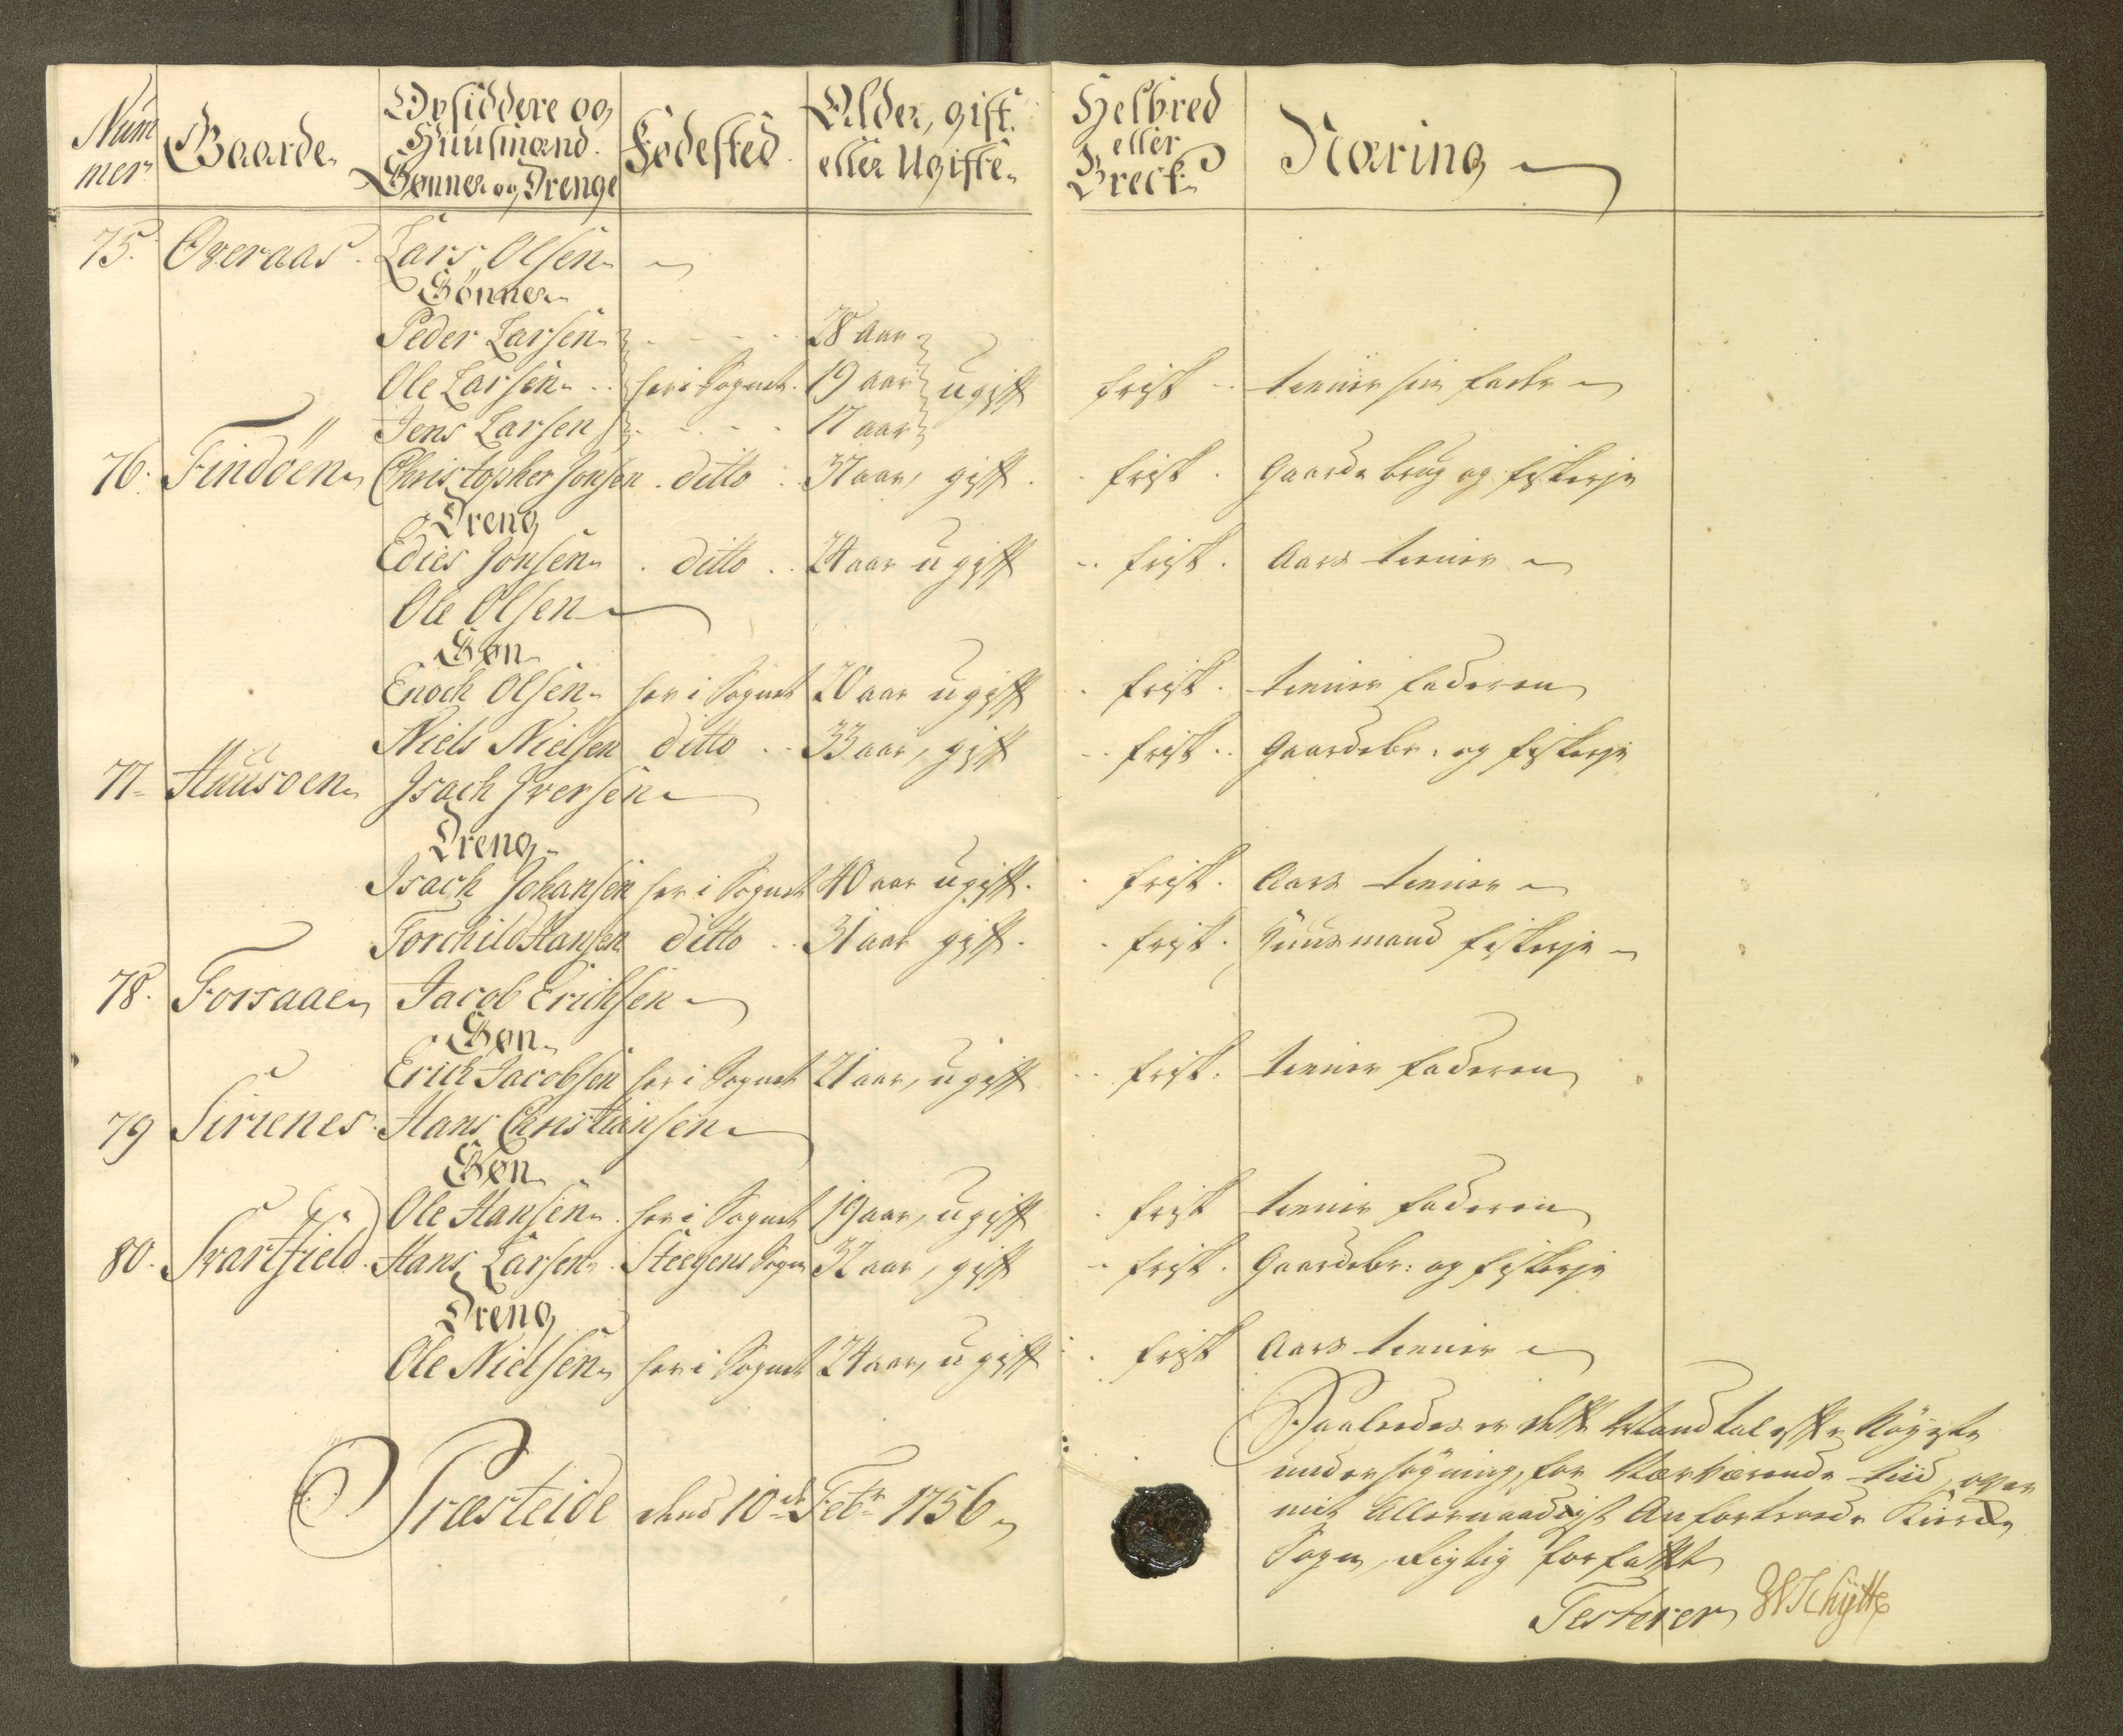 Num
mer
Gaarde
Opsiddere og
Huusmænd.
Sønner og Drenge
Fødested.
Alder, gift
eller Ugifte
Helbred
eller
Breck
Næring
75. Overaas. Lars Olsen
Sönner
Peder Larsen - - - - 28 aar
Ole Larsen her i Sognet. 19 aar ugift frisk tiener sin fader
Jens Larsen - - - - 17 aar
76. Findöen Christopher Jonsen. ditto 37 aar, gift. frisk. Gaards brug og fiskerje
Dreng
Edies Jonsen. ditto 24 aar ugift frisk. Aars tiener
Ole Olsen
Søn
Enoch Olsen her i Sognet 20 aar ugift frisk. tiener faderen
Niels Nielsen ditto 33 aar, gift frisk. Gaardsbr. og fiskerje
77. Huusoen Isach Iversen
Dreng
Isach Johansen her i Sognet 40 aar ugift. frisk. Aars tiener
Torchild Hansen ditto 31 aar gift. frisk. Huusmand fiskerje
78. Forsaae Jacob Erichsen
Søn
Erich Jacobsen her i Sognet 21 aar, ugift frisk. tiener faderen
79 Sirienes. Hans Christiansen
Søn
Ole Hansen her i Sognet 19 aar, ugift frisk tiener faderen
80. Svartfield. Hans Larsen. Steegens Sogn 32 aar, gift frisk. Gaardsbr: og fiskerje
Dreng
Ole Nielsen her i Sognet 24 aar, ugift frisk Aars tiener
Saaledes er dette Mandtal efter Nöyeste
undersögning, for Nærværende tiid, over
mit Allernaadigst Anfortroede Kirke
Sogn, Rigtig forfattet
Præsteide dend 10de Febr 1756
Testerer Schytte